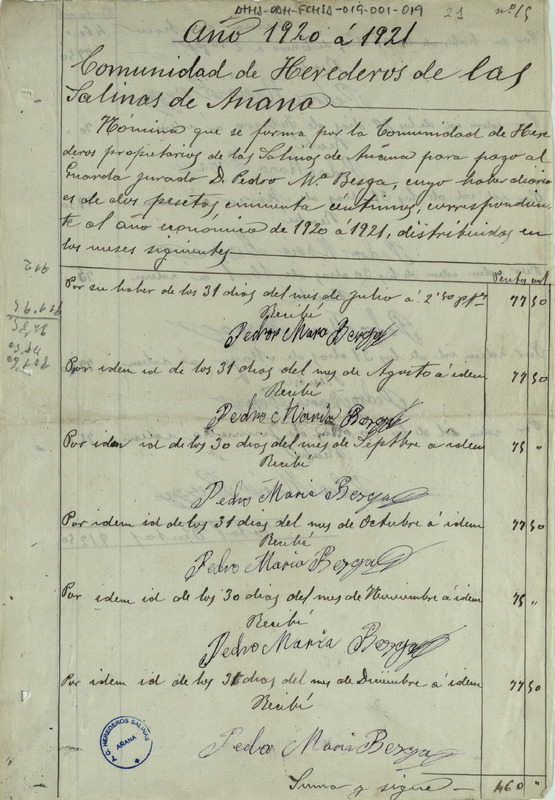 ATHA-DAH-FCHSA-019-001-019
21
nº 15
Año 1920 á 1921
Comunidad de Herederos de las
Salinas de Añana
Nómina que se forma por la Comunidad de Here
deros propietarios de las Salinas de Añana para pago al
Guarda jurado D. Pedro Mª Berga, cuyo haber diario
es de dos pesetas cincuenta céntimos, correspondien
te al año económico de 1920 á 1921, distribuidos en
los meses siguientes
Pesetas cent
Por su haber de los 31 dias del mes de Julio á 2'50 ptas 77 50
Recibé
Pedro Maria Berga
Por idem id de los 31 dias del mes de Agosto á idem 77 50
Recibé
Pedro Maria Berga
Por idem id de los 30 dias del mes de Septbre á idem 75 "
Recibé
Pedro Maria Berga
Por idem id de los 31 dias del mes de Octubre á idem 77 50
Recibé
Pedro Maria Berga
Por idem id de los 30 dias del mes de Noviembre á idem 75 "
Recibé
Pedro Maria Berga
Por idem id de los 31 dias del mes de Diciembre á idem 77 50
Recibé
Pedro Maria Berga
A.C. HEREDEROS SALINAS
AÑANA
Suma y sigue 460 "